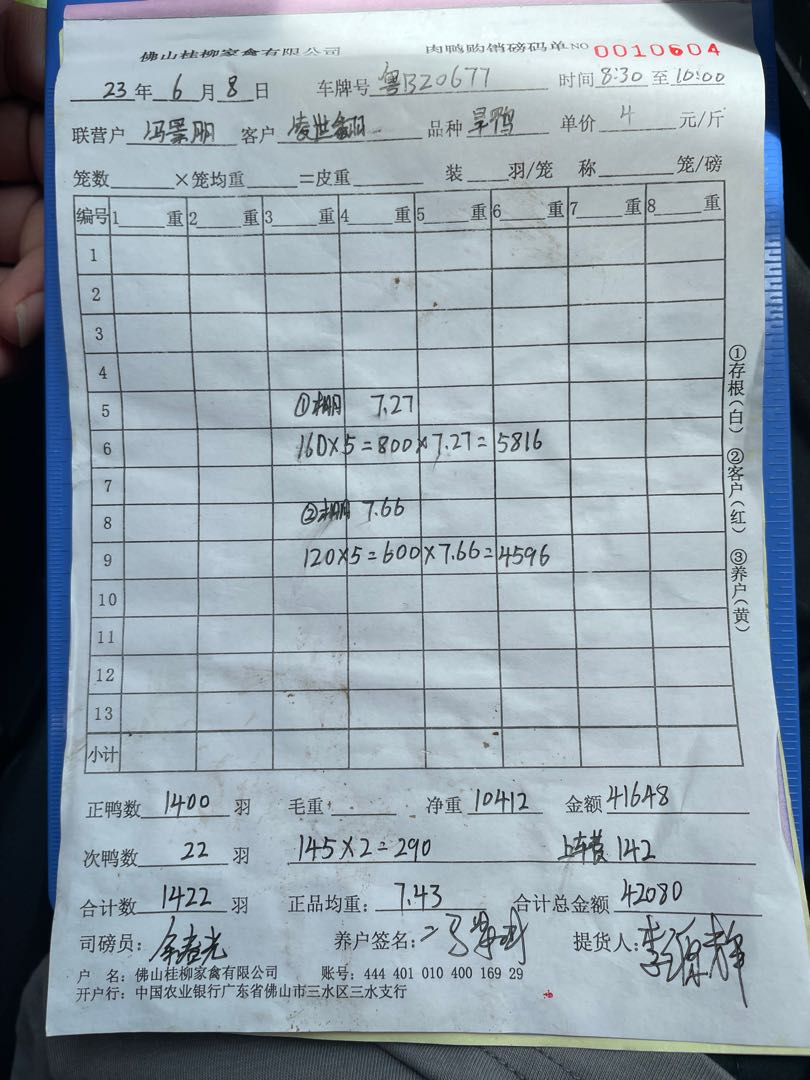 佛山桂柳家禽有限公司 肉鸭购销磅码单 NO 0010604
23年 6月 8日 车牌号 粤BZ0677 时间 8:30 至 10:00
联营户 冯景朋 客户 凌世 品种 旱鸭 单价 4 元/斤
笼数 ×笼均重 =皮重 装 羽/笼 称 笼/磅
编号 1 重 2 重 3 重 4 重 5 重 6 重 7 重 8 重
1
2
3
4
5 ①棚 7.27
6 160×5=800×7.27=5816
7
8 ②棚 7.66
9 120×5=600×7.66=4596
10
11
12
13
小计
①存根(白) ②客户(红) ③养户(黄)
正鸭数 1400 羽 毛重: 净重 10412 金额 41648
次鸭数 22 羽 145×2=290 上车费 142
合计数 1422 羽 正品均重: 7.43 合计总金额 42080
司磅员: 养户签名: 提货人:
户 名: 佛山桂柳家禽有限公司 账号: 444 401 010 400 169 29
开户行: 中国农业银行广东省佛山市三水区三水支行